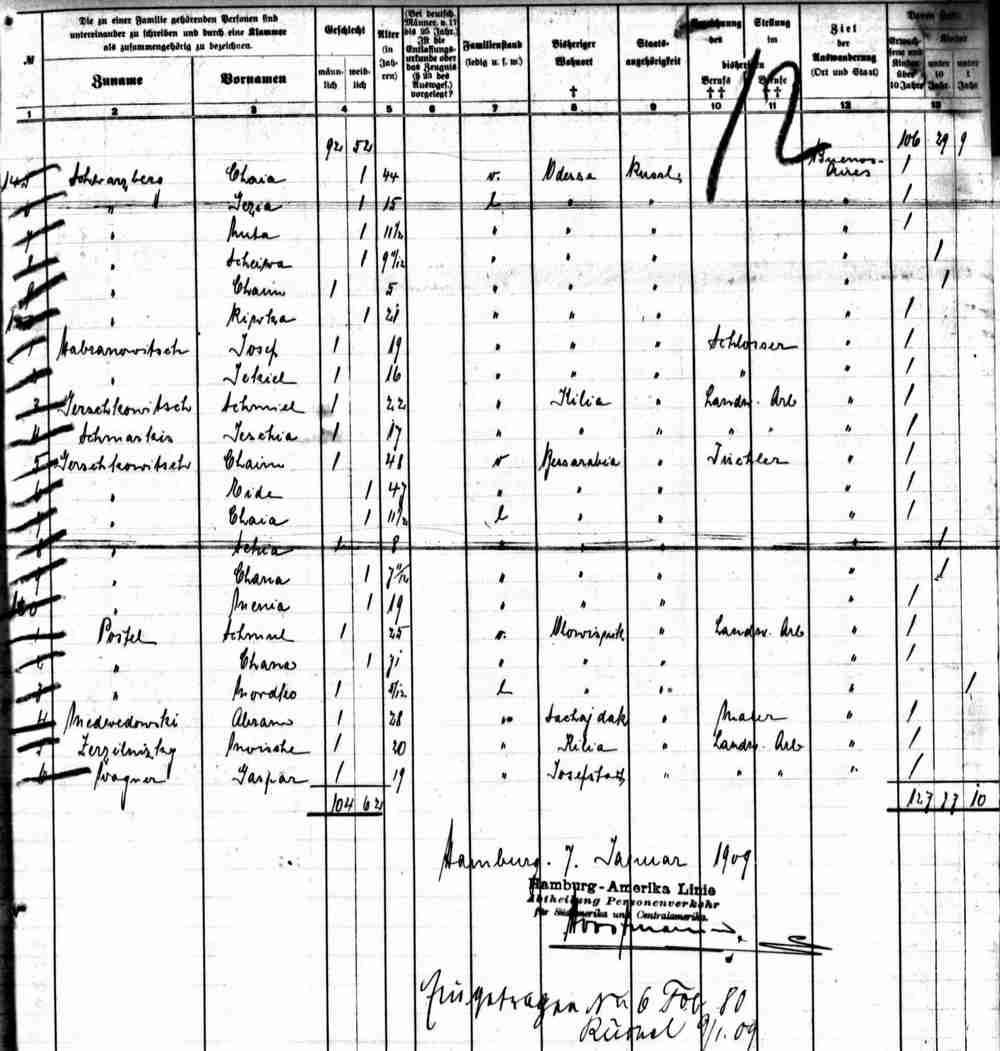 Die zu einer Familie gehörenden Personen sind untereinander zu schreiben und durch eine Klammer als zusammengehörig zu bezeichnen.
Geschlecht
Alter (in Jahren)
(Bei deutsch. Männer. v. 17 bis 25 Jahr.) Ist die Entlassungsurkunde oder das Zeugnis (§ 23 des Ausw.ges.) vorgelegt?
Familienstand (ledig u. s. w.)
Bisheriger Wohnort †
Staatsangehörigkeit
Bezeichnung des bisherigen Berufs ††
Stellung im Berufe ††
Ziel der Auswanderung (Ort und Staat)
Davon sind
Erwachsene und Kinder über 10 Jahre
Kinder
unter 10 Jahr.
unter 1 Jahr
№ Zuname Vornamen männlich weiblich
1 2 3 4 5 6 7 8 9 10 11 12 13
92 52 12 106 29 9
145 Schwarzberg Chaia 1 44 v. Odessa Russl. Buenos-Aires 1
" 1 15 l " " " 1
7 " 1 11 1/2 " " " " 1
" 1 9 11/12 " " " " 1
" Chaim 1 5 " " " " 1
" 1 21 " " " " 1
1 Josef 1 19 " " " Schlosser " 1
" 1 16 " " " " " 1
3 Jerschkowitsch Schmiel 1 22 " Kilia " Landw. Arb " 1
4 1 17 " " " " " " 1
5 Jerschkowitsch Chaim 1 48 v Bessarabia " Tischler " 1
6 " 1 47 " " " " 1
7 " Chaia 1 11 1/2 l " " " 1
8 " 1 8 " " " " 1
9 " Chana 1 7 11/12 " " " " 1
160 " 1 19 " " " " 1
1 Postel 1 25 v. " Landw. Arb " 1
2 " Chana 1 " " " " 1
3 " Mordko 1 l " " " 1
4 Medwedowski Abram 1 28 " " Maler " 1
5 Moische 1 20 " Kilia " Landw. Arb " 1
6 Wagner Gaspar 1 19 " Josefstadt " " " " 1
104 62 123 33 10
Hamburg. 7. Januar 1909
Hamburg-Amerika Linie
Abtheilung Personenverkehr
für Südamerika und Centralamerika.
Eingetragen No 6 Fol 80
9/1. 09